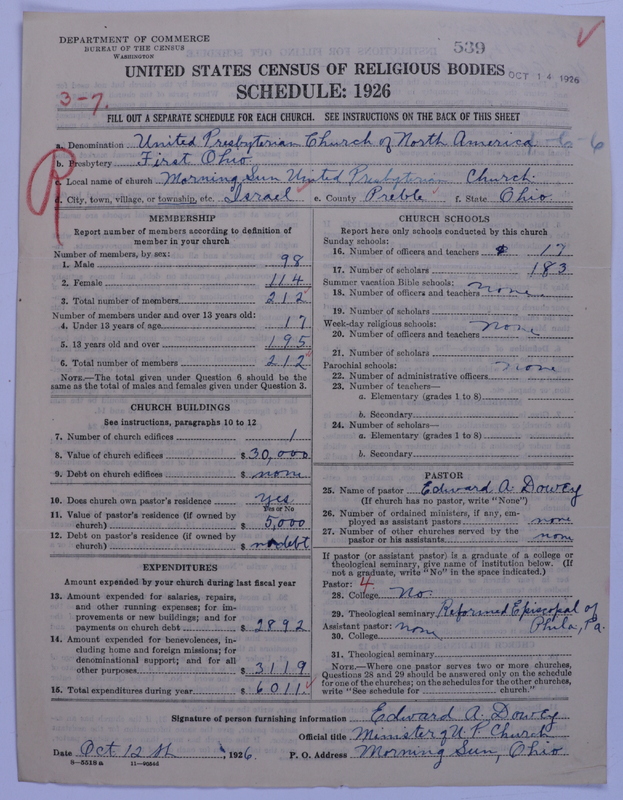 DEPARTMENT OF COMMERCE
BUREAU OF THE CENSUS
WASHINGTON
539
OCT 14 1926
UNITED STATES CENSUS OF RELIGIOUS BODIES
SCHEDULE: 1926
3-7.
FILL OUT A SEPARATE SCHEDULE FOR EACH CHURCH. SEE INSTRUCTIONS ON THE BACK OF THIS SHEET
a. Denomination United Presbyterian Church of North America
b. Presbytery First Ohio
c. Local name of church Morning Sun United Presbyterian Church.
d. City, town, village, or township, etc. Israel e. County Preble f. State Ohio.
R
MEMBERSHIP
Report number of members according to definition of member in your church
Number of members, by sex:
1. Male 98
2. Female 114
3. Total number of members 212
Number of members under and over 13 years old:
4. Under 13 years of age 17
5. 13 years old and over 195
6. Total number of members 212
NOTE.—The total given under Question 6 should be the same as the total of males and females given under Question 3.
CHURCH BUILDINGS
See instructions, paragraphs 10 to 12
7. Number of church edifices 1
8. Value of church edifices $ 30,000
9. Debt on church edifices $ none
10. Does church own pastor's residence yes
Yes or No
11. Value of pastor's residence (if owned by church) $ 5,000
12. Debt on pastor's residence (if owned by church) $ no debt
EXPENDITURES
Amount expended by your church during last fiscal year
13. Amount expended for salaries, repairs, and other running expenses; for improvements or new buildings; and for payments on church debt $ 2892
14. Amount expended for benevolences, including home and foreign missions; for denominational support; and for all other purposes $ 3119
15. Total expenditures during year $ 6011
CHURCH SCHOOLS
Report here only schools conducted by this church
Sunday schools:
16. Number of officers and teachers 17
17. Number of scholars 183
Summer vacation Bible schools:
18. Number of officers and teachers none
19. Number of scholars
Week-day religious schools:
20. Number of officers and teachers none
21. Number of scholars
Parochial schools:
22. Number of administrative officers none
23. Number of teachers—
a. Elementary (grades 1 to 8)
b. Secondary
24. Number of scholars—
a. Elementary (grades 1 to 8)
b. Secondary
PASTOR
25. Name of pastor Edward A. Dowey
(If church has no pastor, write "None")
26. Number of ordained ministers, if any, employed as assistant pastors none
27. Number of other churches served by the pastor or his assistants none
If pastor (or assistant pastor) is a graduate of a college or theological seminary, give name of institution below. (If not a graduate, write "No" in the space indicated.)
Pastor: 4
28. College No.
29. Theological seminary Reformed Episcopal of Phila, Pa.
Assistant pastor: none
30. College
31. Theological seminary
NOTE.—Where one pastor serves two or more churches, Questions 28 and 29 should be answered only on the schedule for one of the churches; on the schedules for the other churches, write "See schedule for church."
Signature of person furnishing information Edward A. Dowey
Official title Minister of U.P. Church
Date Oct 12th, 1926. P. O. Address Morning Sun, Ohio
8-5518 a